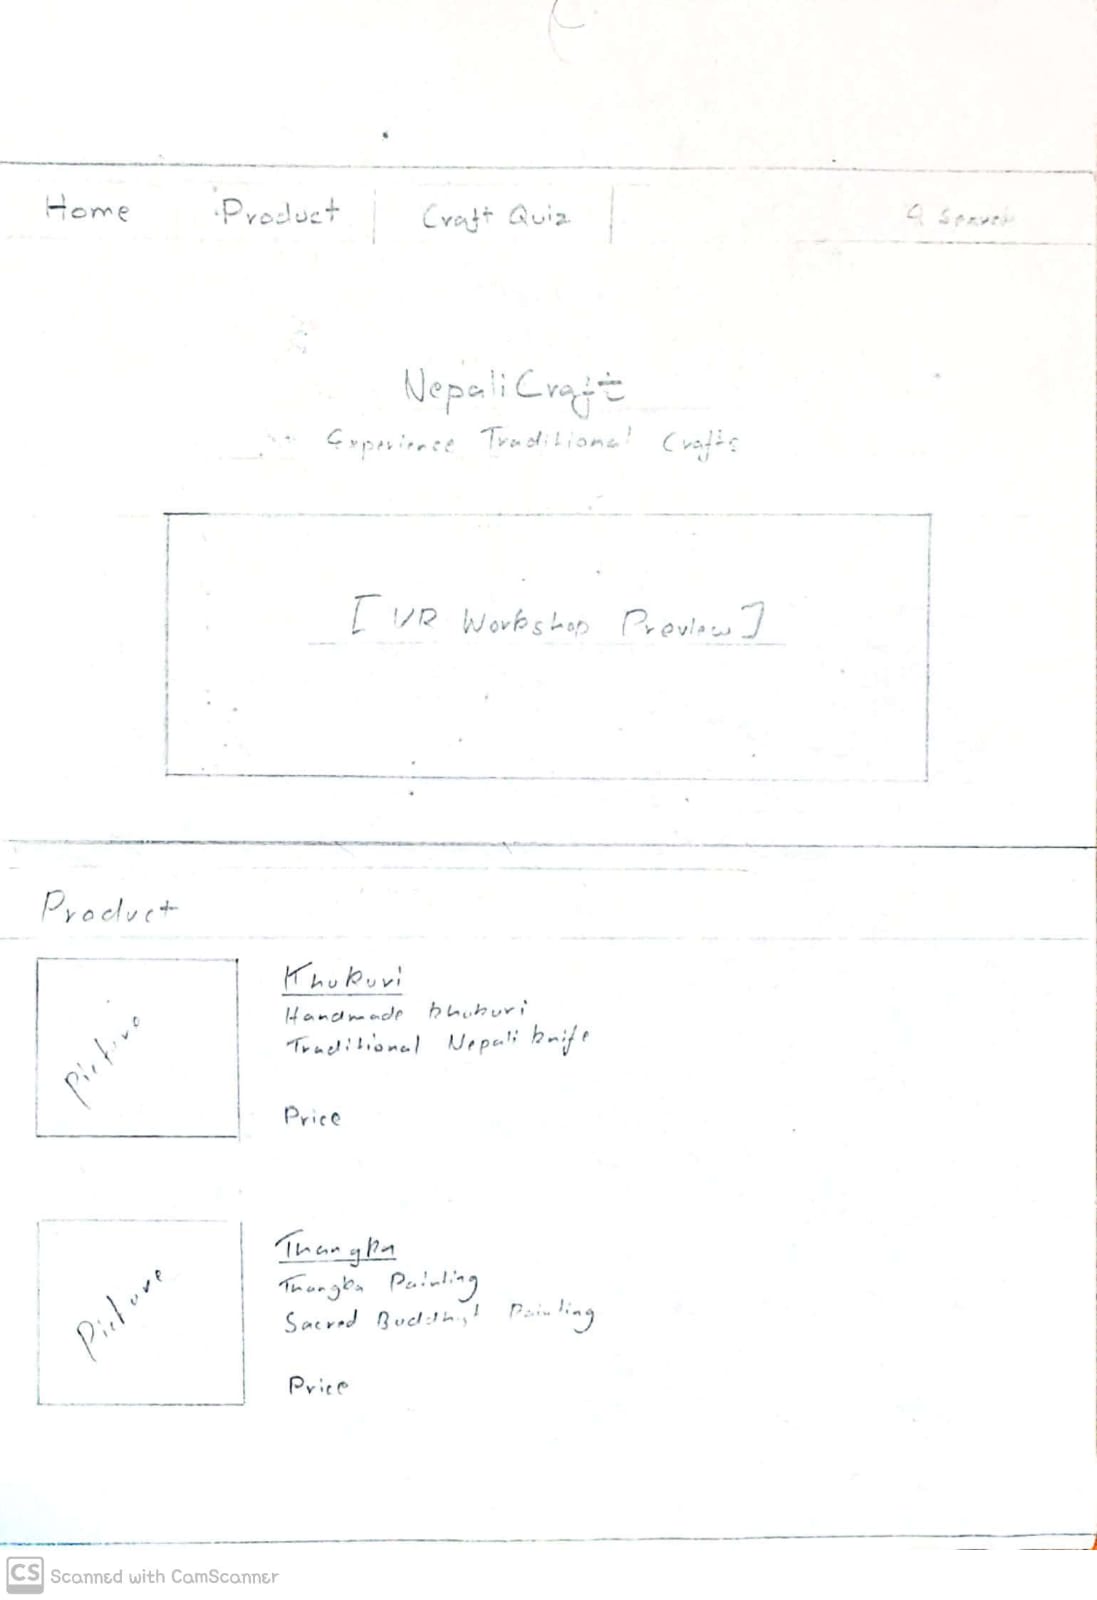 Home Product Craft Quiz Search
NepaliCraft
Experience Traditional Crafts
[VR Workshop Preview]
Product
Picture
Khukuri
Handmade khukuri
Traditional Nepali knife
Price
Picture
Thangka
Thangka Painting
Sacred Buddhist Painting
Price
CS Scanned with CamScanner